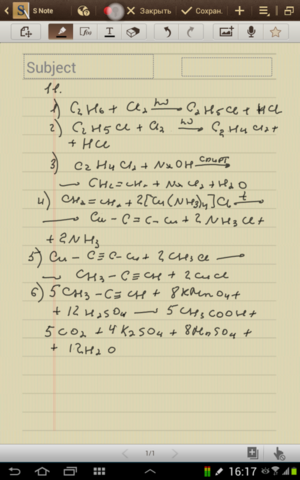 S Note
Закрыть
Сохран.
Subject
11.
1) C2H6 + Cl2 hν→ C2H5Cl + HCl
2) C2H5Cl + Cl2 hν→ C2H4Cl2 +
+ HCl
3) C2H4Cl2 + NaOH спирт→
→ CH2=CH2 + NaCl2 + H2O
4) CH2=CH2 + 2[Cu(NH3)4]Cl t→
→ Cu-C≡C-Cu + 2NH3Cl +
+ 2NH3
5) Cu-C≡C-Cu + 2CH3Cl →
→ CH3-C≡CH + 2CuCl
6) 5CH3-C≡CH + 8KMnO4 +
+ 12H2SO4 → 5CH3COOH +
5CO2 + 4K2SO4 + 8MnSO4 +
+ 12H2O
1/1
16:17